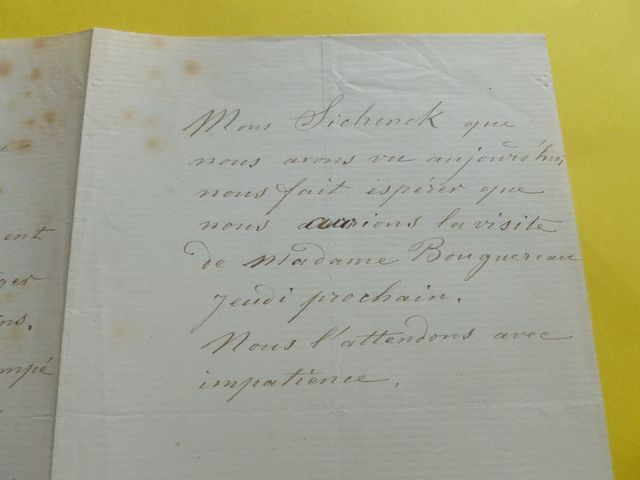 Mons Sichenck que
nous avons vu aujourd'hui,
nous fait espérer que
nous aurions la visite
de Madame Bouguereau
Jeudi prochain.
Nous l'attendons avec
impatience.
ent
ger
ns.
mpé